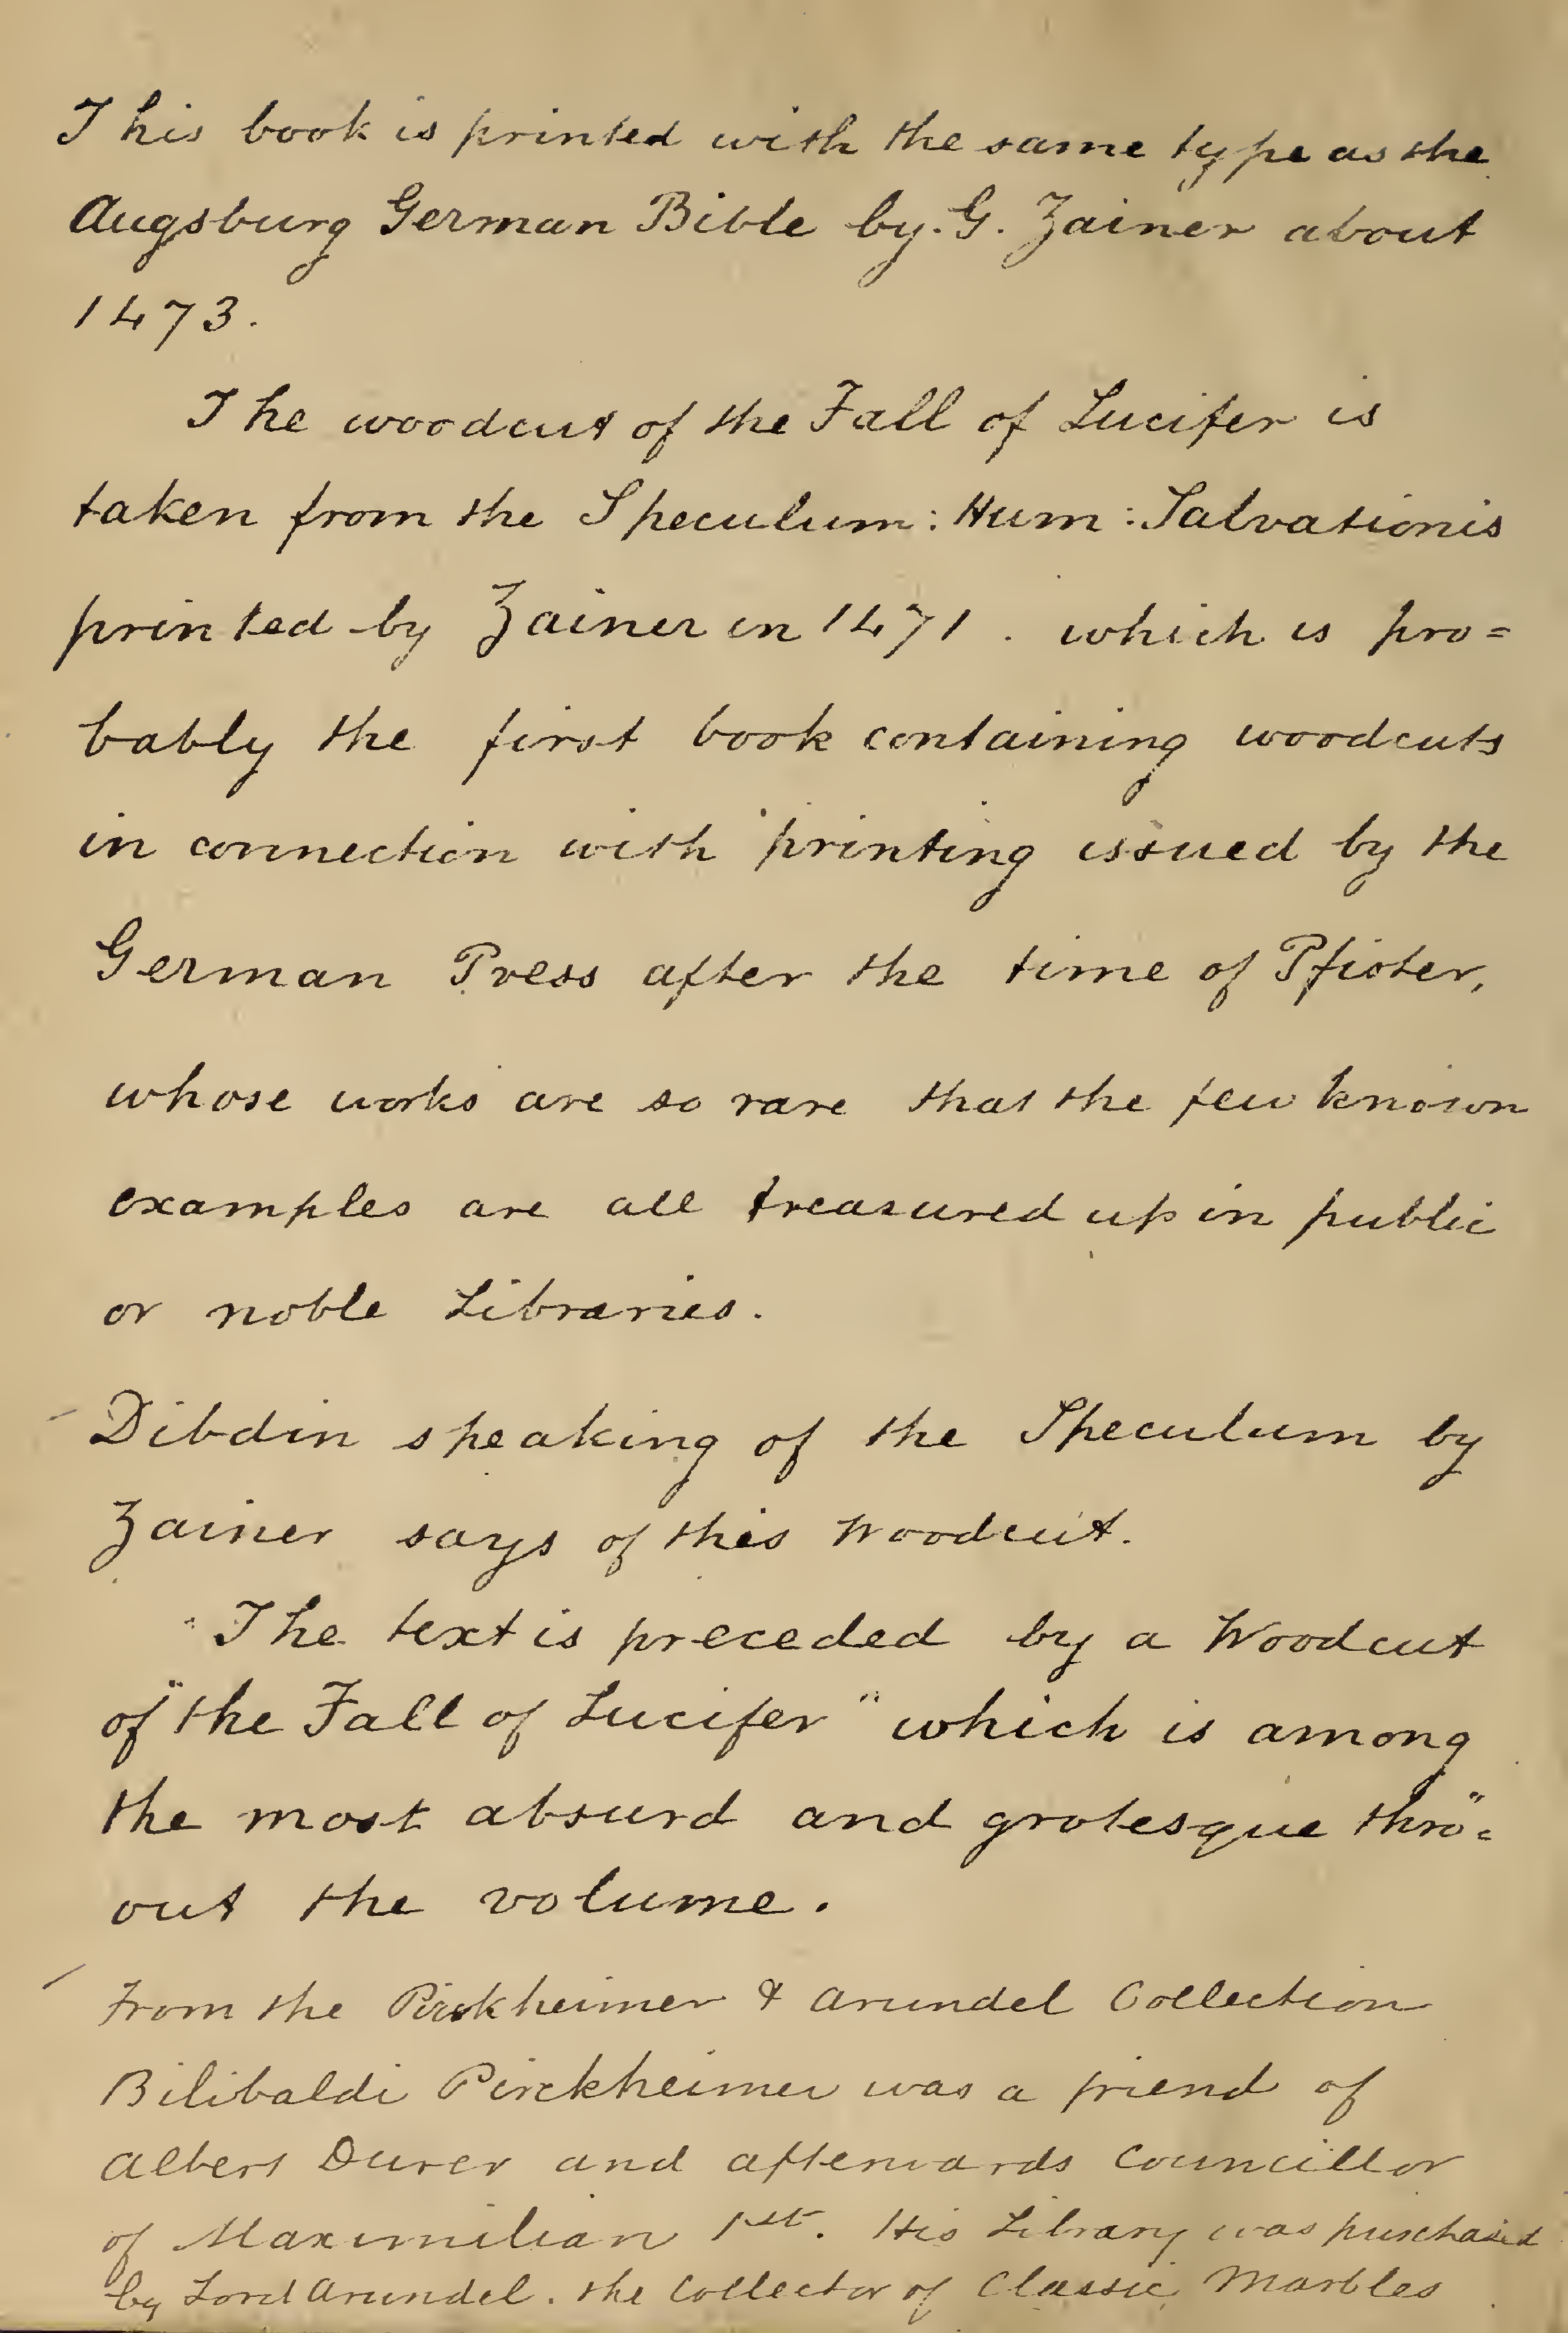 This book is printed with the same type as the
Augsburg German Bible by. G. Zainer about
1473.
The woodcut of the Fall of Lucifer is
taken from the Speculum: Hum: Salvationis
printed by Zainer in 1471. which is pro=
bably the first book containing woodcuts
in connection with printing issued by the
German Press after the time of Pfister,
whose works are so rare that the few known
examples are all treasured up in public
or noble Libraries.
Dibdin speaking of the Speculum by
Zainer says of this Woodcut.
"The text is preceded by a Woodcut
of "the Fall of Lucifer" which is among
the most absurd and grotesque thro"=
out the volume.
From the Pirckheimer & Arundel Collection
Bilibaldi Pirckheimer was a friend of
Albert Durer and afterwards Councillor
of Maximilian 1st. His Library was purchased
by Lord Arundel. the Collector of Classic Marbles